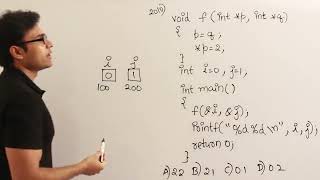 20(ii) void f (int *p, int *q)
{ p=q;
*p=2;
}
int i=0, j=1,
int main()
{
f(&i, &j);
printf("%d %d \n", i, j);
return 0;
}
A) 22 B) 21 C) 01 D) 02
i j
0 1
100 200